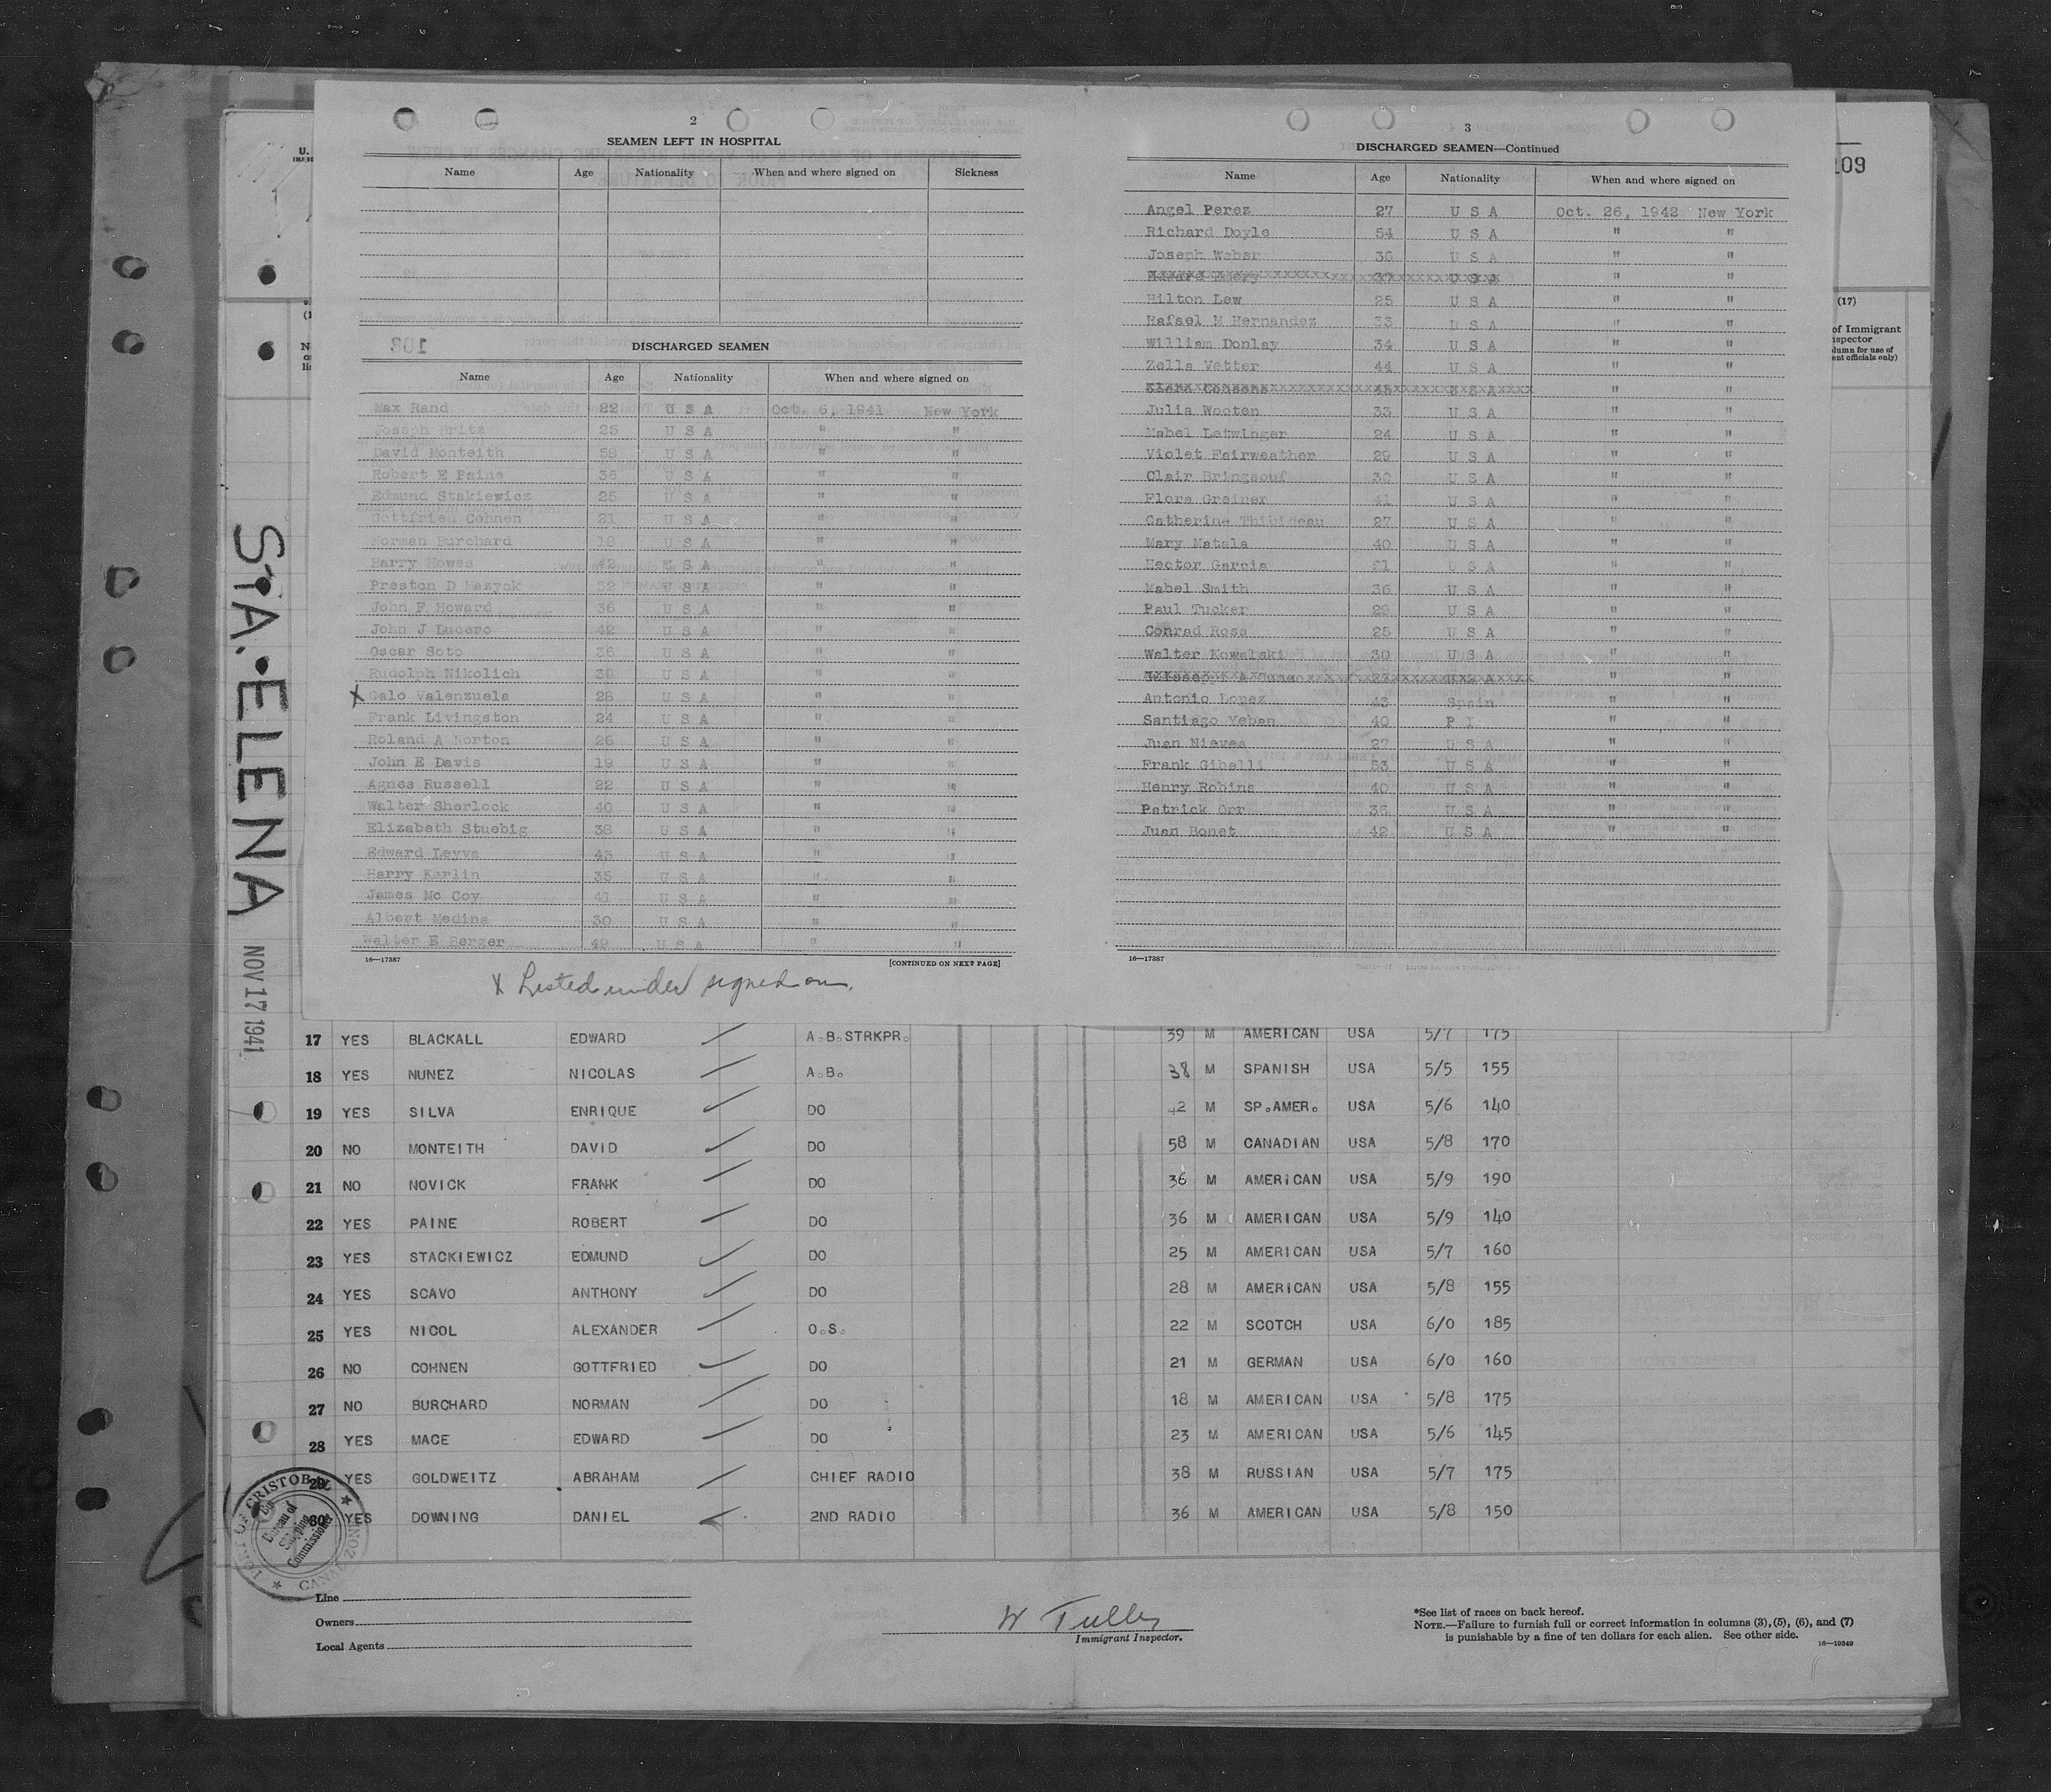 2
SEAMEN LEFT IN HOSPITAL
Name Age Nationality When and where signed on Sickness
DISCHARGED SEAMEN
Name Age Nationality When and where signed on
Max Rand 22 U S A Oct. 6, 1941 New York
Joseph Britz 25 U S A " "
David Monteith 58 U S A " "
Robert E Paine 36 U S A " "
Edmund Stakiewicz 25 U S A " "
Gottfried Cohnen 21 U S A " "
Norman Burchard 18 U S A " "
Harry Howes 42 U S A " "
Preston D Mazyck 32 U S A " "
John F Howard 36 U S A " "
John J Lucero 42 U S A " "
Oscar Soto 36 U S A " "
Rudolph Nikolich 38 U S A " "
X Galo Valenzuela 28 U S A " "
Frank Livingston 24 U S A " "
Roland A Norton 26 U S A " "
John E Davis 19 U S A " "
Agnes Russell 22 U S A " "
Walter Sherlock 40 U S A " "
Elizabeth Stuebig 38 U S A " "
Edward Leyva 43 U S A " "
Harry Karlin 35 U S A " "
James Mc Coy 41 U S A " "
Albert Medina 30 U S A " "
Walter E Berger 49 U S A " "
16—17387 [CONTINUED ON NEXT PAGE]
X Listed under signed on.
3
DISCHARGED SEAMEN—Continued
Name Age Nationality When and where signed on
Angel Perez 27 U S A Oct. 26, 1942 New York
Richard Doyle 54 U S A " "
Joseph Weber 36 U S A " "
" "
Hilton Lew 25 U S A " "
Rafael M Hernandez 33 U S A " "
William Donlay 34 U S A " "
Zella Vetter 44 U S A " "
" "
Julia Wooton 33 U S A " "
Mabel Letwinger 24 U S A " "
Violet Fairweather 29 U S A " "
Clair Bringsouf 30 U S A " "
Flora Greiner 41 U S A " "
Catherine Thibideau 27 U S A " "
Mary Matala 40 U S A " "
Hector Garcia 21 U S A " "
Mabel Smith 36 U S A " "
Paul Tucker 29 U S A " "
Conrad Rosa 25 U S A " "
Walter Kowalski 30 U S A " "
" "
Antonio Lopez 43 Spain " "
Santiago Yeban 40 P I " "
Juan Nieves 27 U S A " "
Frank Gibelli 53 U S A " "
Henry Robins 40 U S A " "
Patrick Orr 36 U S A " "
Juan Bonet 42 U S A " "
16—17387
109
(17)
of Immigrant
STA. ELENA
NOV 17 1941
17 YES BLACKALL EDWARD A.B.STRKPR. 39 M AMERICAN USA 5/7 175
18 YES NUNEZ NICOLAS A.B. 38 M SPANISH USA 5/5 155
19 YES SILVA ENRIQUE DO 42 M SP.AMER. USA 5/6 140
20 NO MONTEITH DAVID DO 58 M CANADIAN USA 5/8 170
21 NO NOVICK FRANK DO 36 M AMERICAN USA 5/9 190
22 YES PAINE ROBERT DO 36 M AMERICAN USA 5/9 140
23 YES STACKIEWICZ EDMUND DO 25 M AMERICAN USA 5/7 160
24 YES SCAVO ANTHONY DO 28 M AMERICAN USA 5/8 155
25 YES NICOL ALEXANDER O.S. 22 M SCOTCH USA 6/0 185
26 NO COHNEN GOTTFRIED DO 21 M GERMAN USA 6/0 160
27 NO BURCHARD NORMAN DO 18 M AMERICAN USA 5/8 175
28 YES MACE EDWARD DO 23 M AMERICAN USA 5/6 145
29 YES GOLDWEITZ ABRAHAM CHIEF RADIO 38 M RUSSIAN USA 5/7 175
30 YES DOWNING DANIEL 2ND RADIO 36 M AMERICAN USA 5/8 150
PORT OF CRISTOBAL
Bureau of
Shipping
Commissioner
CANAL ZONE
Line
Owners
Local Agents
W Tully
Immigrant Inspector.
*See list of races on back hereof.
NOTE.—Failure to furnish full or correct information in columns (3), (5), (6), and (7)
is punishable by a fine of ten dollars for each alien. See other side.
16—19349